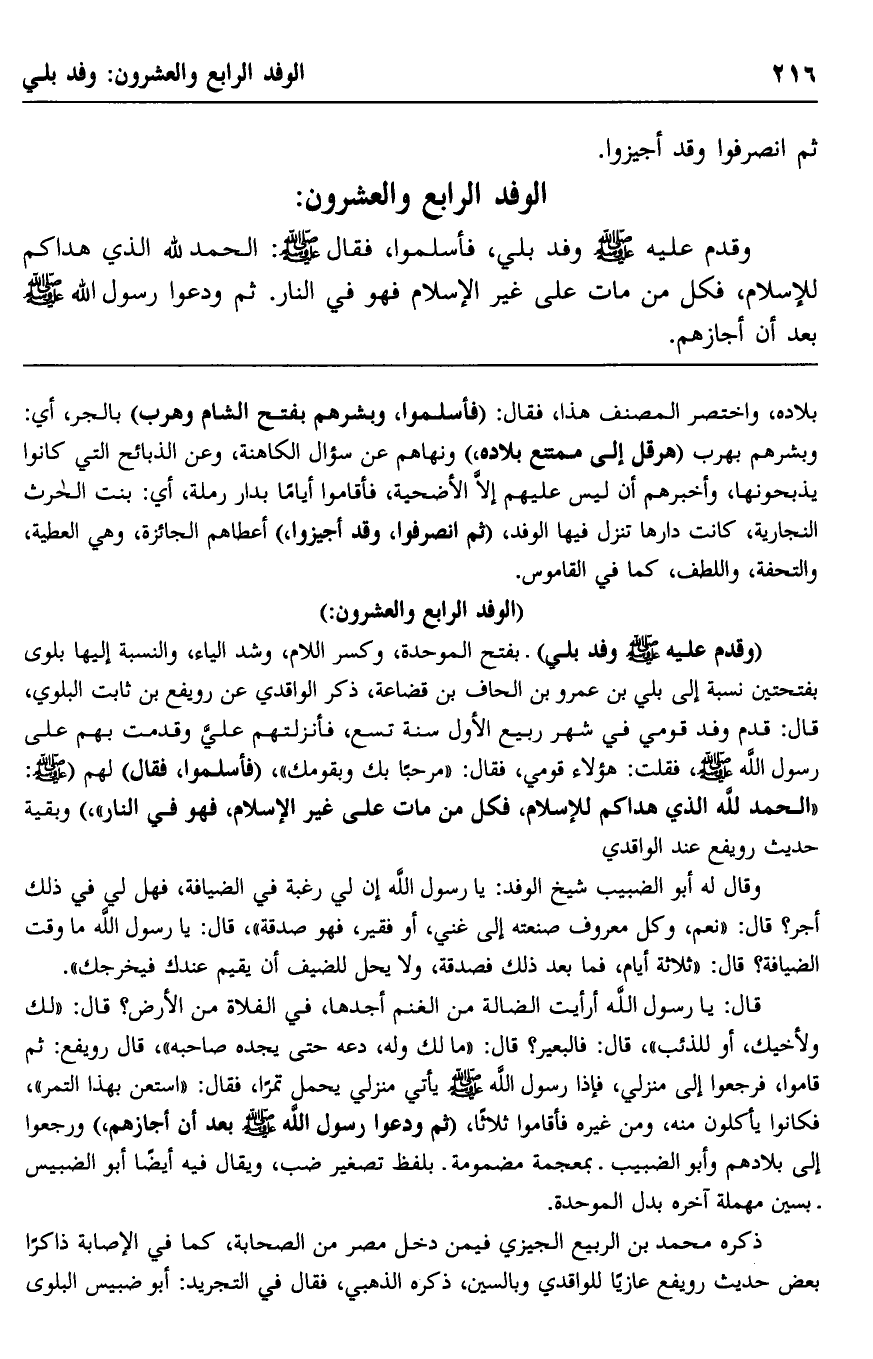 ٢١٦ الوفد الرابع والعشرون: وفد بلـي
ثم انصرفوا وقد أجيزوا.
الوفد الرابع والعشرون:
وقدم عليه ﷺ وفد بلي، فأسلموا، فقال ﷺ: الحمد لله الذي هداكم
للإسلام، فكل من مات على غير الإسلام فهو في النار. ثم ودعوا رسول الله ﷺ
بعد أن أجازهم.
بلاده، واختصر المصنف هذا، فقال: (فأسلموا، وبشرهم بفتح الشام وهرب) بالجر، أي:
وبشرهم بهرب (هرقل إلى ممتنع بلاده،) ونهاهم عن سؤال الكاهنة، وعن الذبائح التي كانوا
يذبحونها، وأخبرهم أن ليس عليهم إلاَّ الأضحية، فأقاموا أيامًا بدار رملة، أي: بنت الحٰرث
النجارية، كانت دارها تنزل فيها الوفد، (ثم انصرفوا، وقد أجيزوا،) أعطاهم الجائزة، وهي العطية،
والتحفة، واللطف، كما في القاموس.
(الوفد الرابع والعشرون:)
(وقدم عليه ﷺ وفد بلي) . بفتح الموحدة، وكسر اللام، وشد الياء، والنسبة إليها بلوى
بفتحتين نسبة إلى بلي بن عمرو بن الحاف بن قضاعة، ذكر الواقدي عن رويفع بن ثابت البلوي،
قال: قدم وفد قومي في شهر ربيع الأول سنة تسع، فأنزلتهم عليَّ وقدمت بهم على
رسول اللَّه ﷺ، فقلت: هؤلاء قومي، فقال: «مرحبًا بك وبقومك»، (فأسلموا، فقال) لهم (ﷺ:
«الحمد للَّه الذي هداكم للإسلام، فكل من مات على غير الإسلام، فهو في النار»،) وبقية
حديث رويفع عند الواقدي
وقال له أبو الضبيب شيخ الوفد: يا رسول اللَّه إن لي رغبة في الضيافة، فهل لي في ذلك
أجر؟ قال: «نعم، وكل معروف صنعته إلى غني، أو فقير، فهو صدقة»، قال: يا رسول اللَّه ما وقت
الضيافة؟ قال: «ثلاثة أيام، فما بعد ذلك فصدقة، ولا يحل للضيف أن يقيم عندك فيخرجك».
قال: يا رسول اللَّه أرأيت الضالة من الغنم أجدها، في الفلاة من الأرض؟ قال: «لك
ولأخيك، أو للذئب»، قال: فالبعير؟ قال: «ما لك وله، دعه حتى يجده صاحبه»، قال رويفع: ثم
قاموا، فرجعوا إلى منزلي، فإذا رسول اللَّه ﷺ يأتي منزلي يحمل تمرًا، فقال: «استعن بهذا التمر»،
فكانوا يأكلون منه، ومن غيره فأقاموا ثلاثًا، (ثم ودعوا رسول اللَّه ﷺ بعد أن أجازهم،) ورجعوا
إلى بلادهم وأبو الضبيب . بمعجمة مضمومة . بلفظ تصغير ضب، ويقال فيه أيضًا أبو الضبيس
. بسين مهملة آخره بدل الموحدة.
ذكره محمد بن الربيع الجيزي فيمن دخل مصر من الصحابة، كما في الإصابة ذاكرًا
بعض حديث رويفع عازيًا للواقدي وبالسين، ذكره الذهبي، فقال في التجريد: أبو ضبيس البلوى